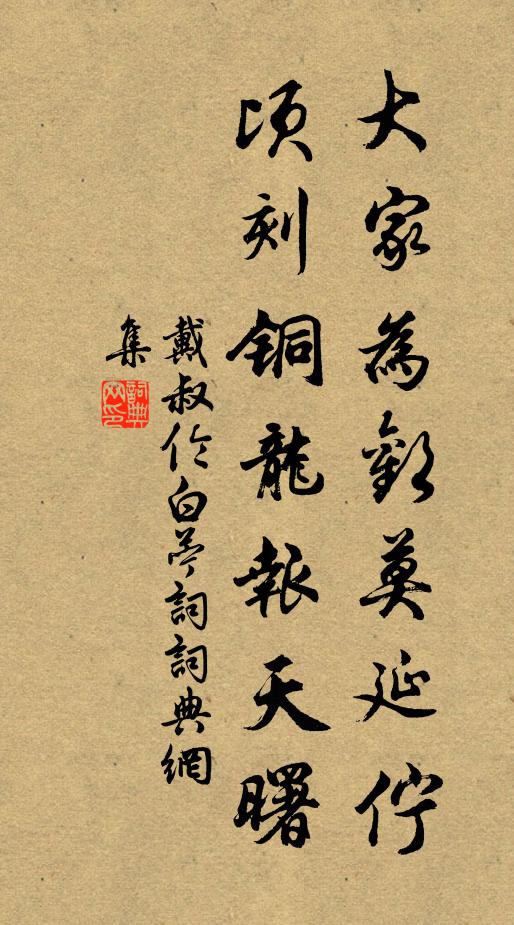 大家為歡莫延佇
頃刻銅龍報天曙
戴叔伦白苎詞詞典網
集
詞典
网印